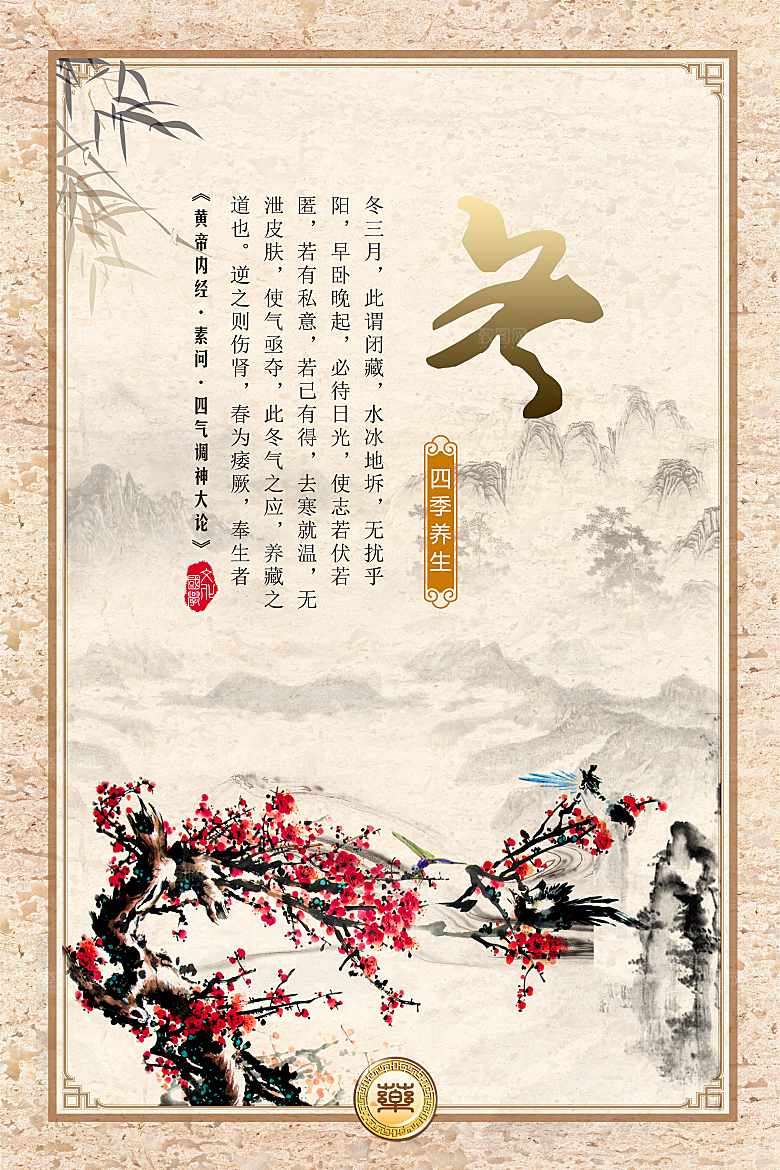 冬
四季养生
冬三月，此谓闭藏，水冰地坼，无扰乎
阳，早卧晚起，必待日光，使志若伏若
匿，若有私意，若己有得，去寒就温，无
泄皮肤，使气亟夺，此冬气之应，养藏之
道也。逆之则伤肾，春为痿厥，奉生者
《黄帝内经·素问·四气调神大论》
文化
國學
藥